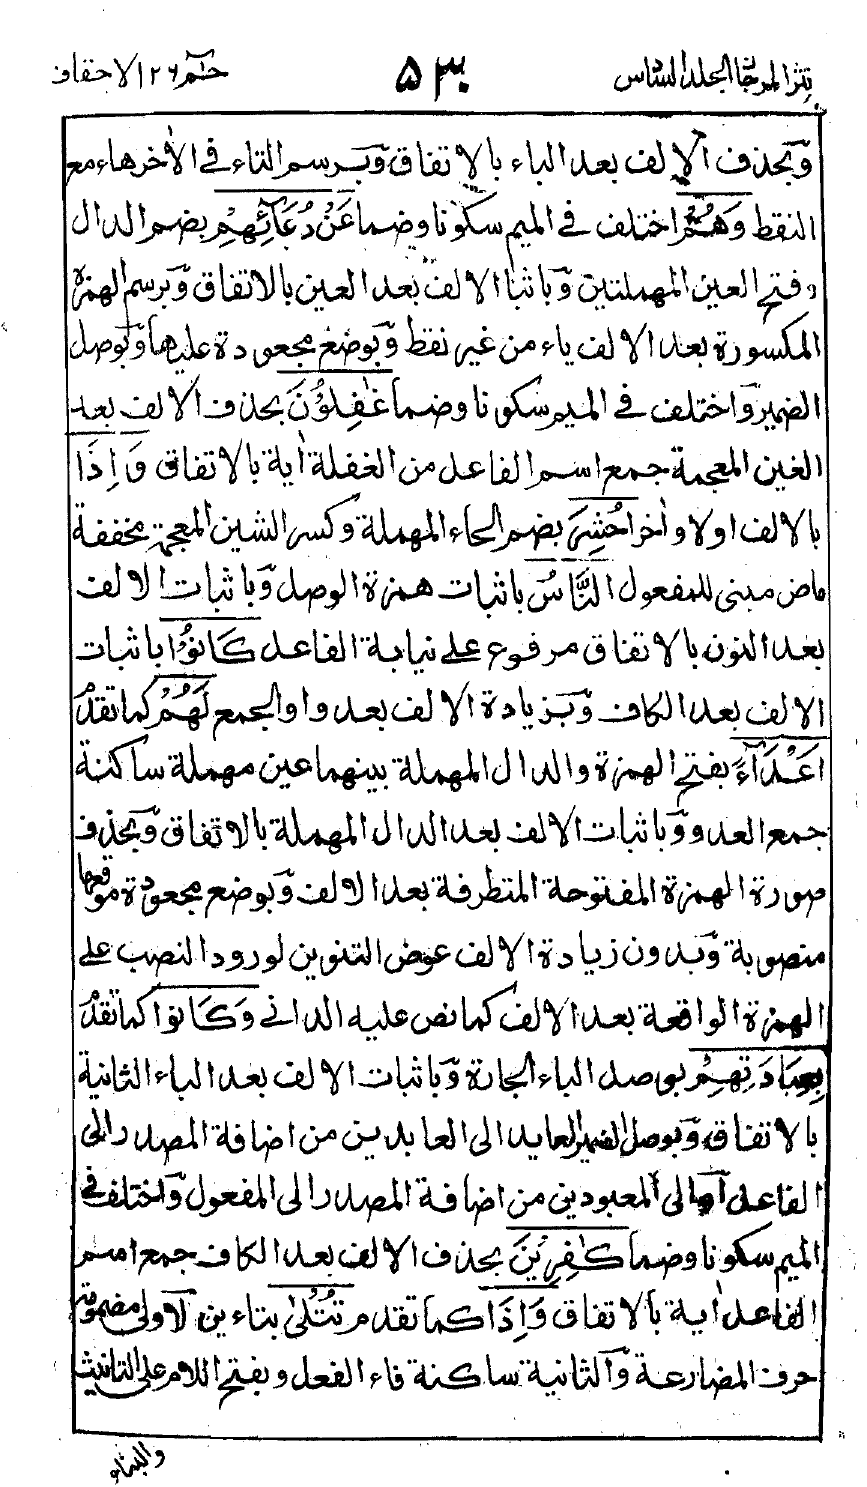 نثر المرجان الجلد السادس ۵۳۰ حٰمٓ ۲۶ الاحقاف
وَبحذف الالف بعد الياء بالاتفاق وَبرسم التاء في الاٰخر هاء مع
النقط وَهُمْ اختلف في الميم سكونا وضما عَنْ دُعَآئِهِمْ بضم الدال
وفتح العين المهملتين وَباثبات الالف بعد العين بالاتفاق وَبرسم الهمزة
المكسورة بعد الالف ياء من غير نقط وَبوضع مجعودة عليها وَبوصل
الضمير وَاختلف في الميم سكونا وضما غٰفِلُوْنَ بحذف الالف بعد
الغين المعجمة جمع اسم الفاعل من الغفلة اٰية بالاتفاق وَاِذَا
بالالف اولا واٰخرا حُشِرَ بضم الحاء المهملة وكسر الشين المعجمة مخففة
ماض مبني للمفعول النَّاسُ باثبات همزة الوصل وَباثبات الالف
بعد النون بالاتفاق مرفوع على نيابة الفاعل كَانُوْا باثبات
الالف بعد الكاف وَبزيادة الالف بعد واو الجمع لَهُمْ كما تقدم
اَعْدَآءً بفتح الهمزة والدال المهملة بينهما عين مهملة ساكنة
جمع العدو وَباثبات الالف بعد الدال المهملة بالاتفاق وَبحذف
صورة الهمزة المفتوحة المتطرفة بعد الالف وَبوضع مجعودة موقعها
منصوبة وَبدون زيادة الالف عوض التنوين لورود النصب على
الهمزة الواقعة بعد الالف كما نص عليه الداني وَكَانُوْا كما تقدم
بِعِبَادَتِهِمْ بوصل الباء الجارة وَباثبات الالف بعد الباء الثانية
بالاتفاق وَبوصل الضمير العايد الى العابدين من اضافة المصدر الى
الفاعل او الى المعبودين من اضافة المصدر الى المفعول وَاختلف في
الميم سكونا وضما كٰفِرِيْنَ بحذف الالف بعد الكاف جمع اسم
الفاعل اٰية بالاتفاق وَاِذَا كما تقدم تُتْلٰى بتاءين الاولى مضمومة
حرف المضارعة وَالثانية ساكنة فاء الفعل وبفتح اللام على التانيث
والبناء